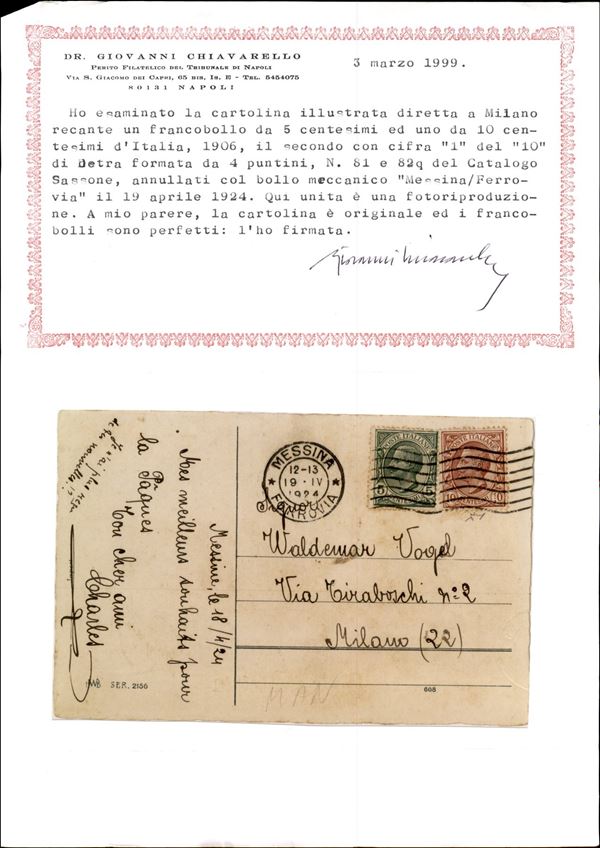 DR. GIOVANNI CHIAVARELLO
PERITO FILATELICO DEL TRIBUNALE DI NAPOLI
VIA S. GIACOMO DEI CAPRI, 65 BIS, IS. E - TEL. 5454075
80131 NAPOLI
3 marzo 1999.
Ho esaminato la cartolina illustrata diretta a Milano
recante un francobollo da 5 centesimi ed uno da 10 cen-
tesimi d'Italia, 1906, il secondo con cifra "1" del "10"
di destra formata da 4 puntini, N. 81 e 82q del Catalogo
Sassone, annullati col bollo meccanico "Messina/Ferro-
via" il 19 aprile 1924. Qui unita è una fotoriproduzio-
ne. A mio parere, la cartolina è originale ed i franco-
bolli sono perfetti: l'ho firmata.
Messine, le 18/4/24
Mes meilleurs souhaits pour
la Pâques
Ton cher ami
Charles
SER. 2156
MESSINA
12-13
19 · IV
1924
FERROVIA
POSTE ITALIANE
5
POSTE ITALIANE
10
Waldemar Vogel
Via Tiraboschi n° 2
Milano (22)
608
MAN